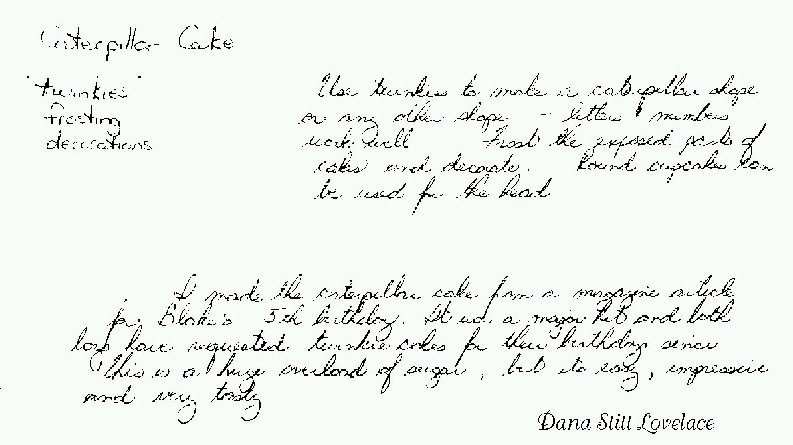 Caterpillar Cake
"twinkies"
frosting
decorations
Use twinkies to make a caterpillar shape
or any other shape - letter numbers
work well Frost the exposed parts of
cakes and decorate. Round cupcakes can
be used for the head
I made the caterpillar cake from a magazine article
for Blake's 5th birthday. It was a major hit and both
boys have requested twinkie cakes for their birthday since
This is a huge overload of sugar, but its easy, impressive
and very tasty
Dana Still Lovelace